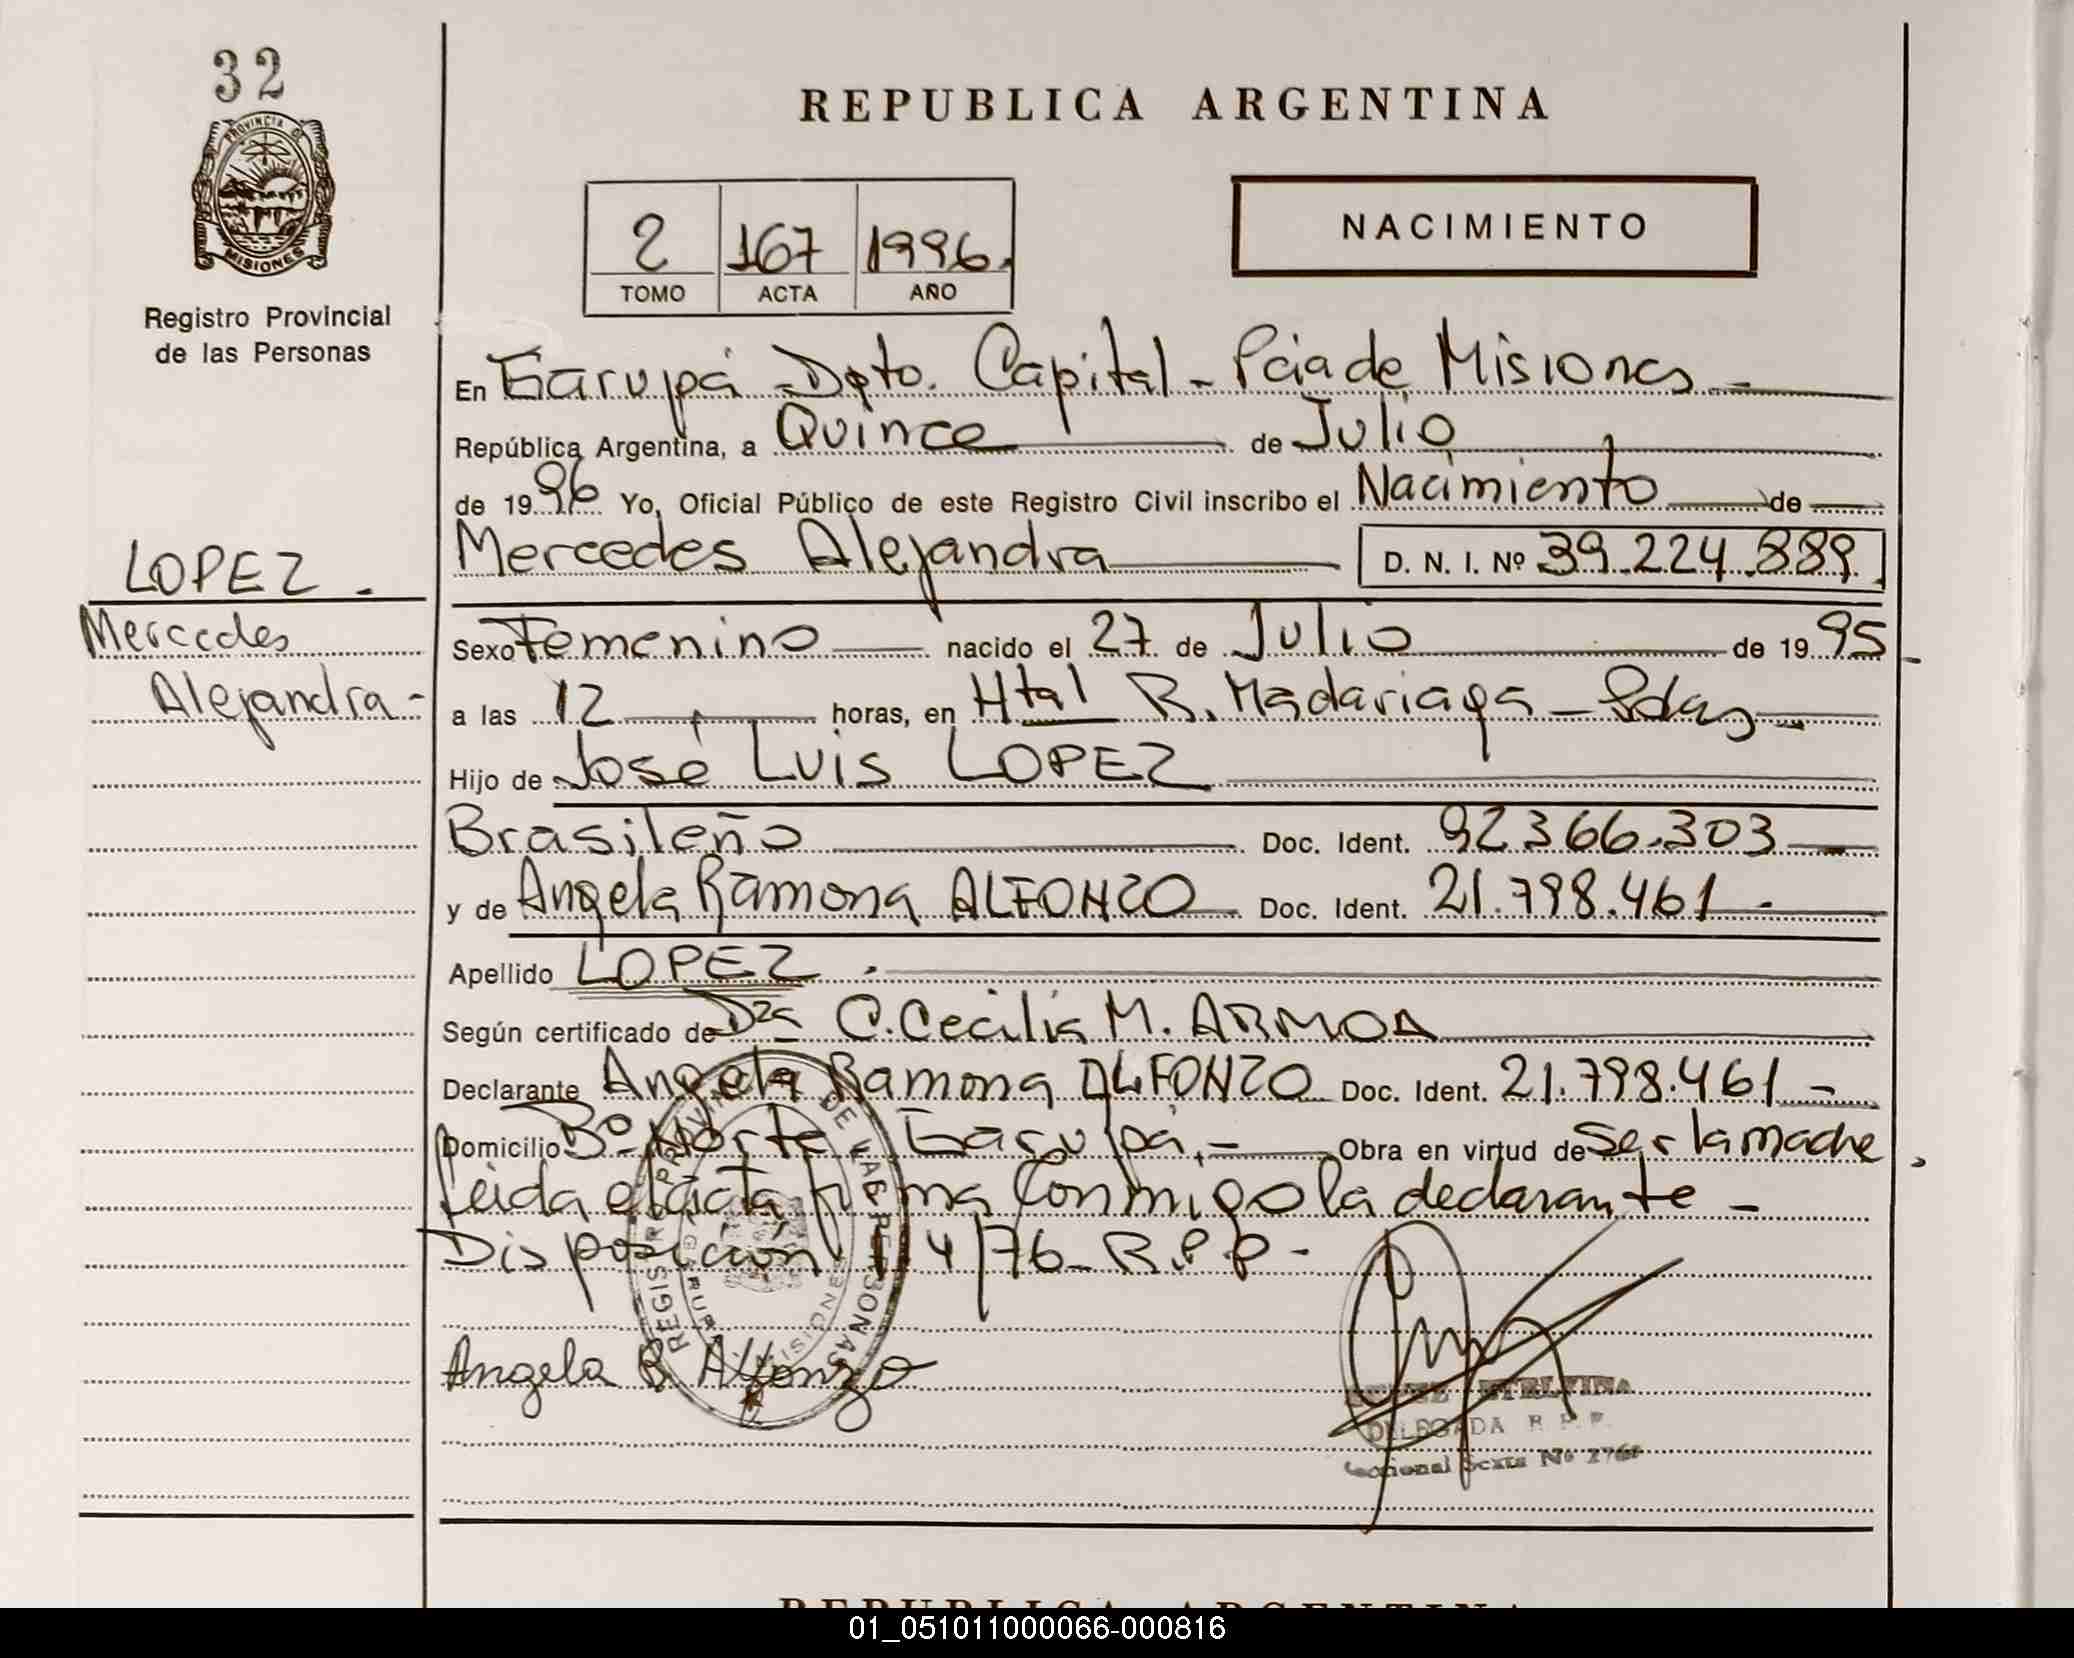 32
PROVINCIA DE
MISIONES
Registro Provincial
de las Personas
REPUBLICA ARGENTINA
2 167 1996.
TOMO ACTA AÑO
NACIMIENTO
En Garupá - Dpto. Capital - Pcia de Misiones -
República Argentina, a Quince de Julio
de 1996 Yo, Oficial Público de este Registro Civil inscribo el Nacimiento de
Mercedes Alejandra D. N. I. Nº 39.224.889
LOPEZ -
Mercedes
Alejandra -
Sexo Femenino nacido el 27 de Julio de 1995 -
a las 12 horas, en Htal R. Madariaga - Pdas -
Hijo de José Luis LOPEZ
Brasileño Doc. Ident. 92.366.303 -
y de Angela Ramona ALFONZO Doc. Ident. 21.798.461 -
Apellido LOPEZ .
Según certificado de Dra C. Cecilia M. ARMOA
Declarante Angela Ramona ALFONZO Doc. Ident. 21.798.461 -
Domicilio Bº Norte Garupá, - Obra en virtud de Ser la madre
Leida el acta firma conmigo la declarante -
Disposición 14/76 - R.P.P -
REGISTRO PROVINCIAL DE LAS PERSONAS
GARUPA
MISIONES
Angela R Alfonzo
ETELVINA
DELEGADA R. P. P.
Seccional Sexta Nº
REPUBLICA ARGENTINA
01_051011000066-000816